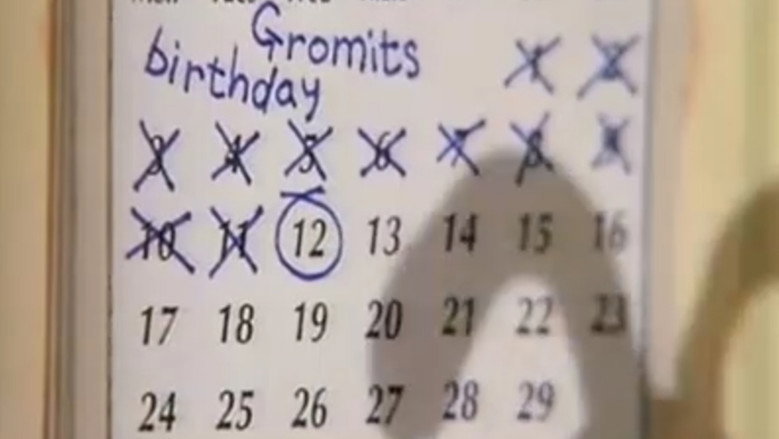 Gromits
birthday
1 2
3 4 5 6 7 8 9
10 11 12 13 14 15 16
17 18 19 20 21 22 23
24 25 26 27 28 29